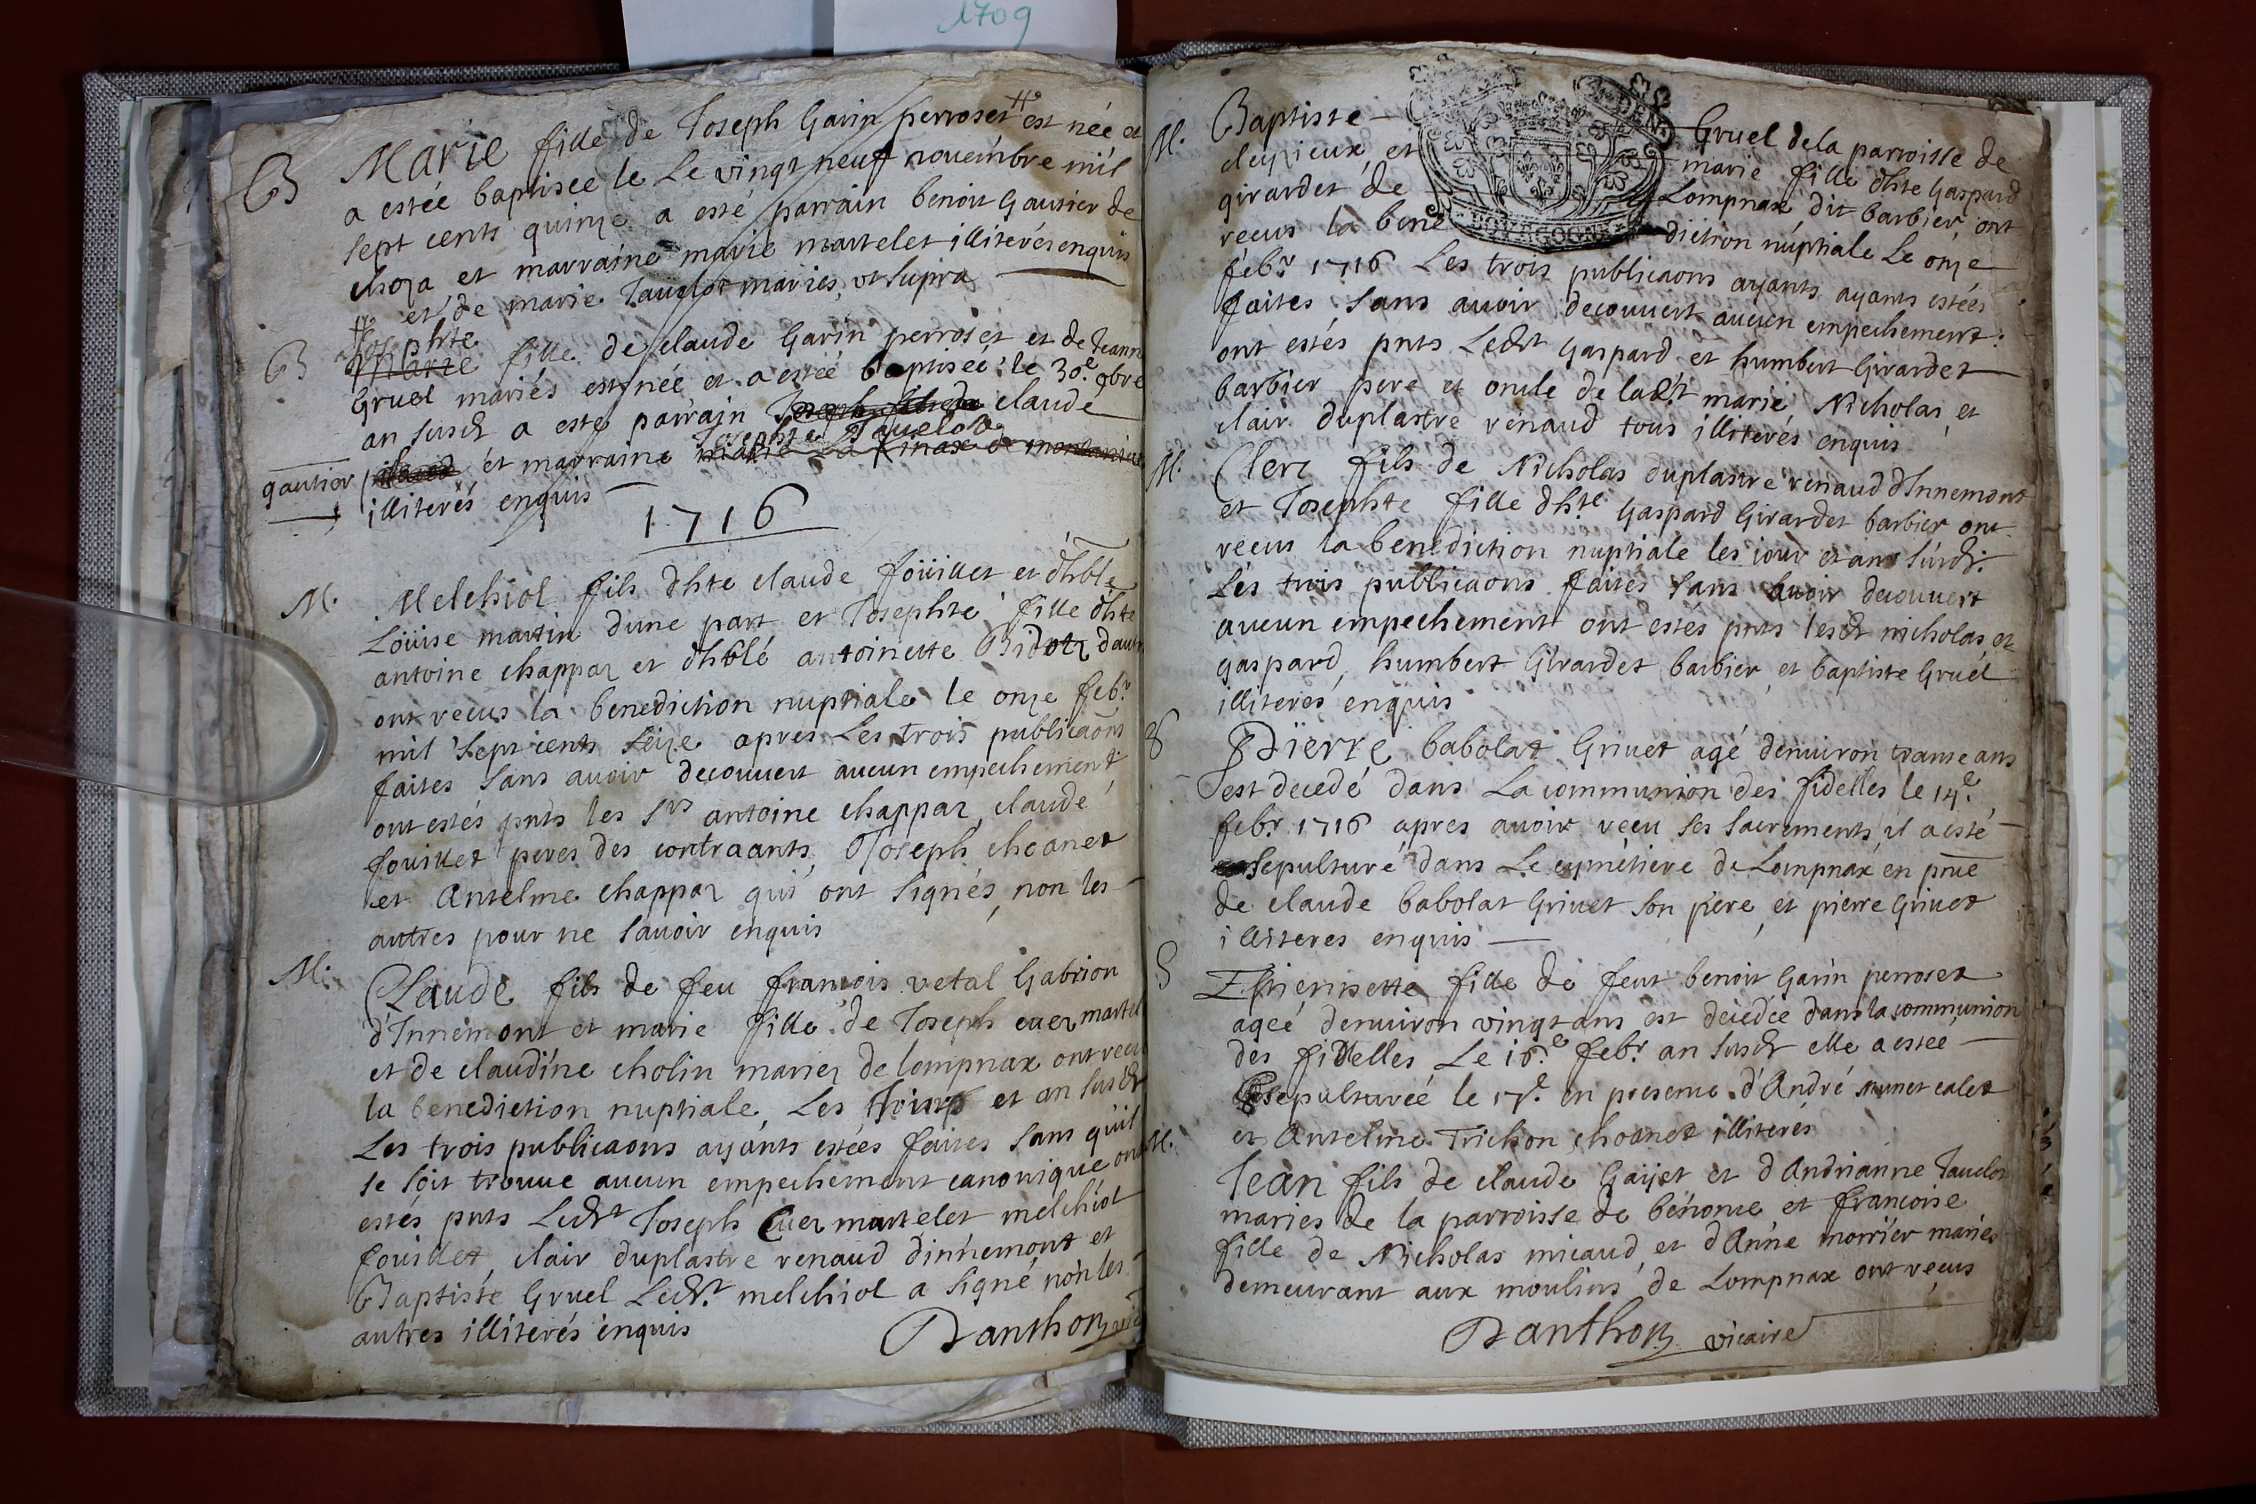 1709
B Marie fille de Joseph Garin perroset # est née et
a estée baptisée le Le vingt neuf novembre mil
sept cents quinze a esté parrain benoit Gautier de
choza et marraine marie martelet illiterés enquis
# et de marie Tauelot mariés, ut supra
B Josephte
Marie fille de claude Garin perroset et de Jeanne
Gruel mariés est née et a estée baptisée le 30.e 9bre
an susdt a esté parrain claude
gautier et marraine Josephte Tauelot
illiterés enquis
1716
M. Melchiol fils dhte claude foüillet et dhble
Loüise martin dune part et Josephte fille dhte
antoine chappaz et dhblé antoinette Bidoz dautre
ont recus la benediction nuptiale le onze febr
mil sept cents seize apres Les trois publicaons
faites sans auoir decouuert aucun empechement
ont estés pnts les srs antoine chappaz, claude
fouillet peres des contraants, Joseph choanet
et Antelme chappaz qui ont signés, non les
autres pour ne sauoir enquis
M. Claude fils de feu francois vetal Gabrion
d'Innemont et marie fille de Joseph cuez martelet
et de claudine cholin mariez de lompnax ont recu
la benediction nuptiale Les jour et an susdt
Les trois publicaons ayants estées faites sans quil
se soit trouue aucun empechement canonique ont
estés pnts Ledt Joseph Cuez martelet melchiol
fouillet, clair duplastre renaud dinnemont et
Baptiste Gruel Ledt melchiol a signé non les
autres illiterés enquis
Danthon
M. Baptiste Gruel de la parroisse de
cleyzieux et marie fille dhte Gaspard
girardet de Lompnax dit barbier ont
recus la bene diction nuptiale Le onze
BOURGOGNE
febr 1716 Les trois publicaons ayants ayants estées
faites sans auoir decouuert aucun empechement:
ont estés pnts Ledt Gaspard et humbert Girardet
barbier pere et oncle de ladt marie Nicholas et
clair duplastre renaud tous illiterés enquis
M. Clerc fils de Nicholas duplastre renaud dInnemont
et Josephte fille dhte Gaspard Girardet barbier ont
recus la benediction nuptiale les jour et an susdt.
Les trois publicaons faites sans auoir decouuert
aucun empechement ont estés pnts lesdt nicholas et
gaspard, humbert Girardet barbier et baptiste Gruel
illiterés enquis
S Pierre babolat Griuet agé denuiron trante ans
est decedé dans La communion des fidelles le 14.e
febr 1716 apres auoir recu ses sacrements il a esté
sepulturé dans Le cymetiere de Lompnax en pnce
de claude babolat Griuet son pere et pierre Griuet
illiteres enquis
S Estiennette fille de feut benoit Garin perroset
agée denuiron vingt ans est decedée dans la communion
des fidelles Le 16.e febr an susdt elle a estée
sepulturée le 17.e en presence d'André nunet calet
et Antelme Trichon choanet illiterés
M. Jean fils de claude Gayet et dAndrianne Tauelot
maries de la parroisse de benonce et francoise
fille de Nicholas micaud et dAnne morrier mariés
demeurant aux moulins de Lompnax ont recus
Danthon vicaire